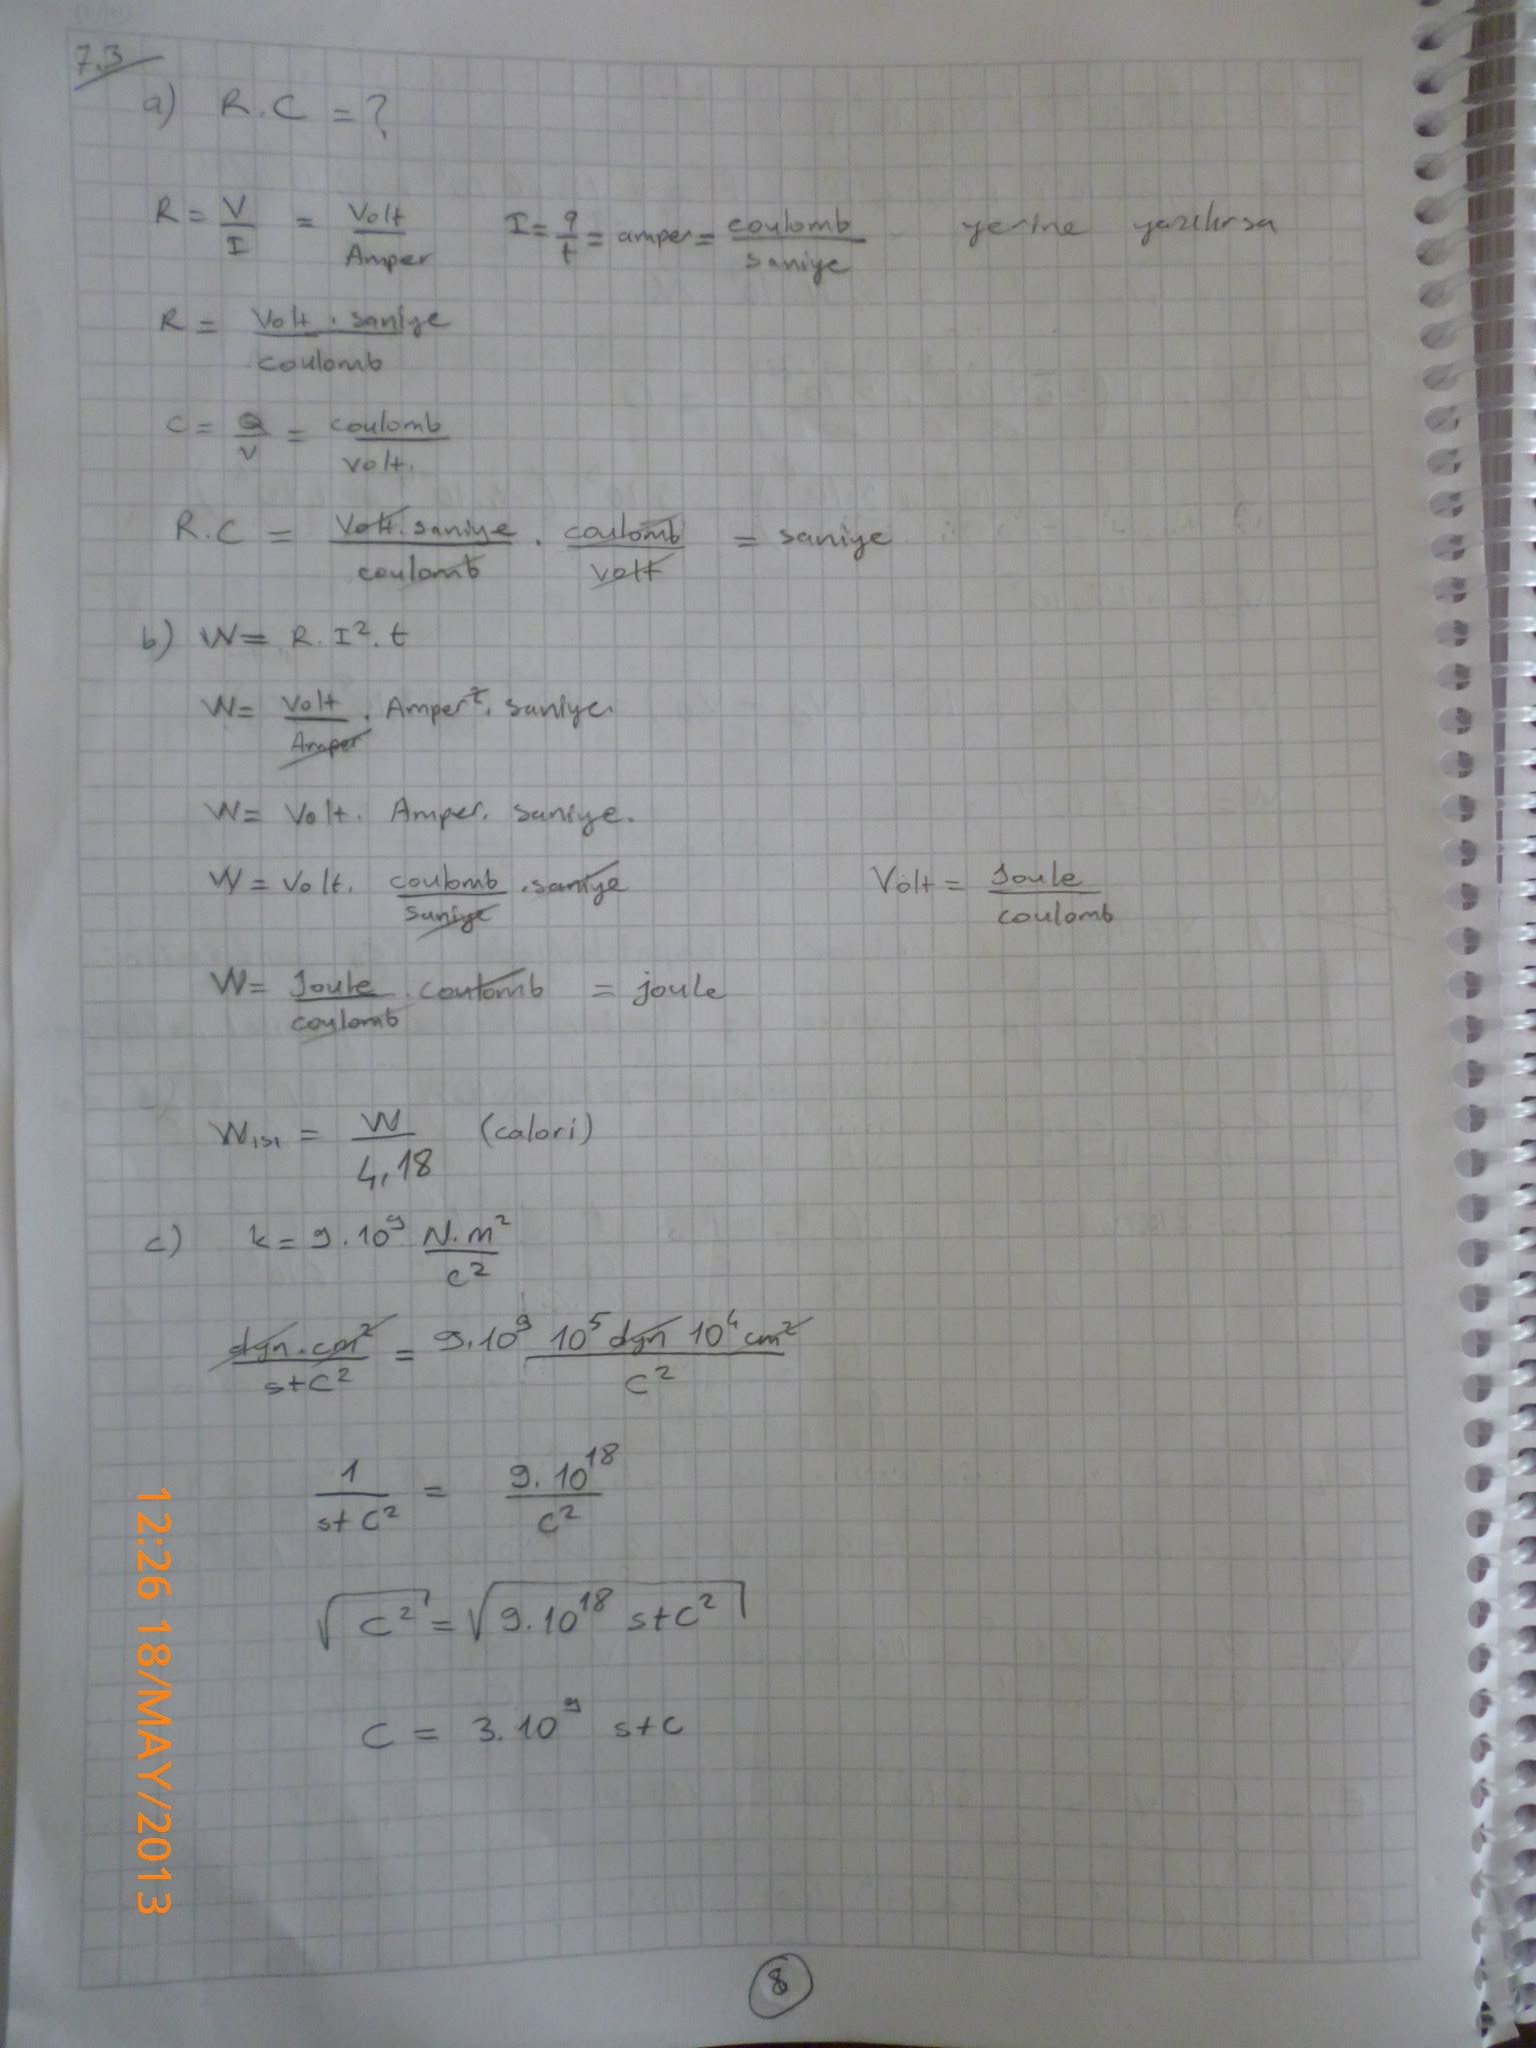 7.3
a) R.C = ?
R = V/I = Volt/Amper I = q/t = amper = coulomb/saniye yerine yazılırsa
R = Volt . saniye/coulomb
C = Q/V = coulomb/volt.
R.C = Volt.saniye/coulomb . coulomb/volt = saniye
b) W = R. I². t
W = Volt/Amper . Amper². saniye.
W = Volt. Amper. saniye.
W = Volt. coulomb/saniye .saniye Volt = Joule/coulomb
W = Joule/coulomb . coulomb = joule
Wısı = W/4,18 (calori)
c) k = 9.10⁹ N.m²/c²
dyn.cm²/stC² = 9.10⁹ 10⁵ dyn 10⁴ cm²/C²
1/stC² = 9.10¹⁸/C²
√C² = √9.10¹⁸ stC²
C = 3.10⁹ stC
12:26 18/MAY/2013
8